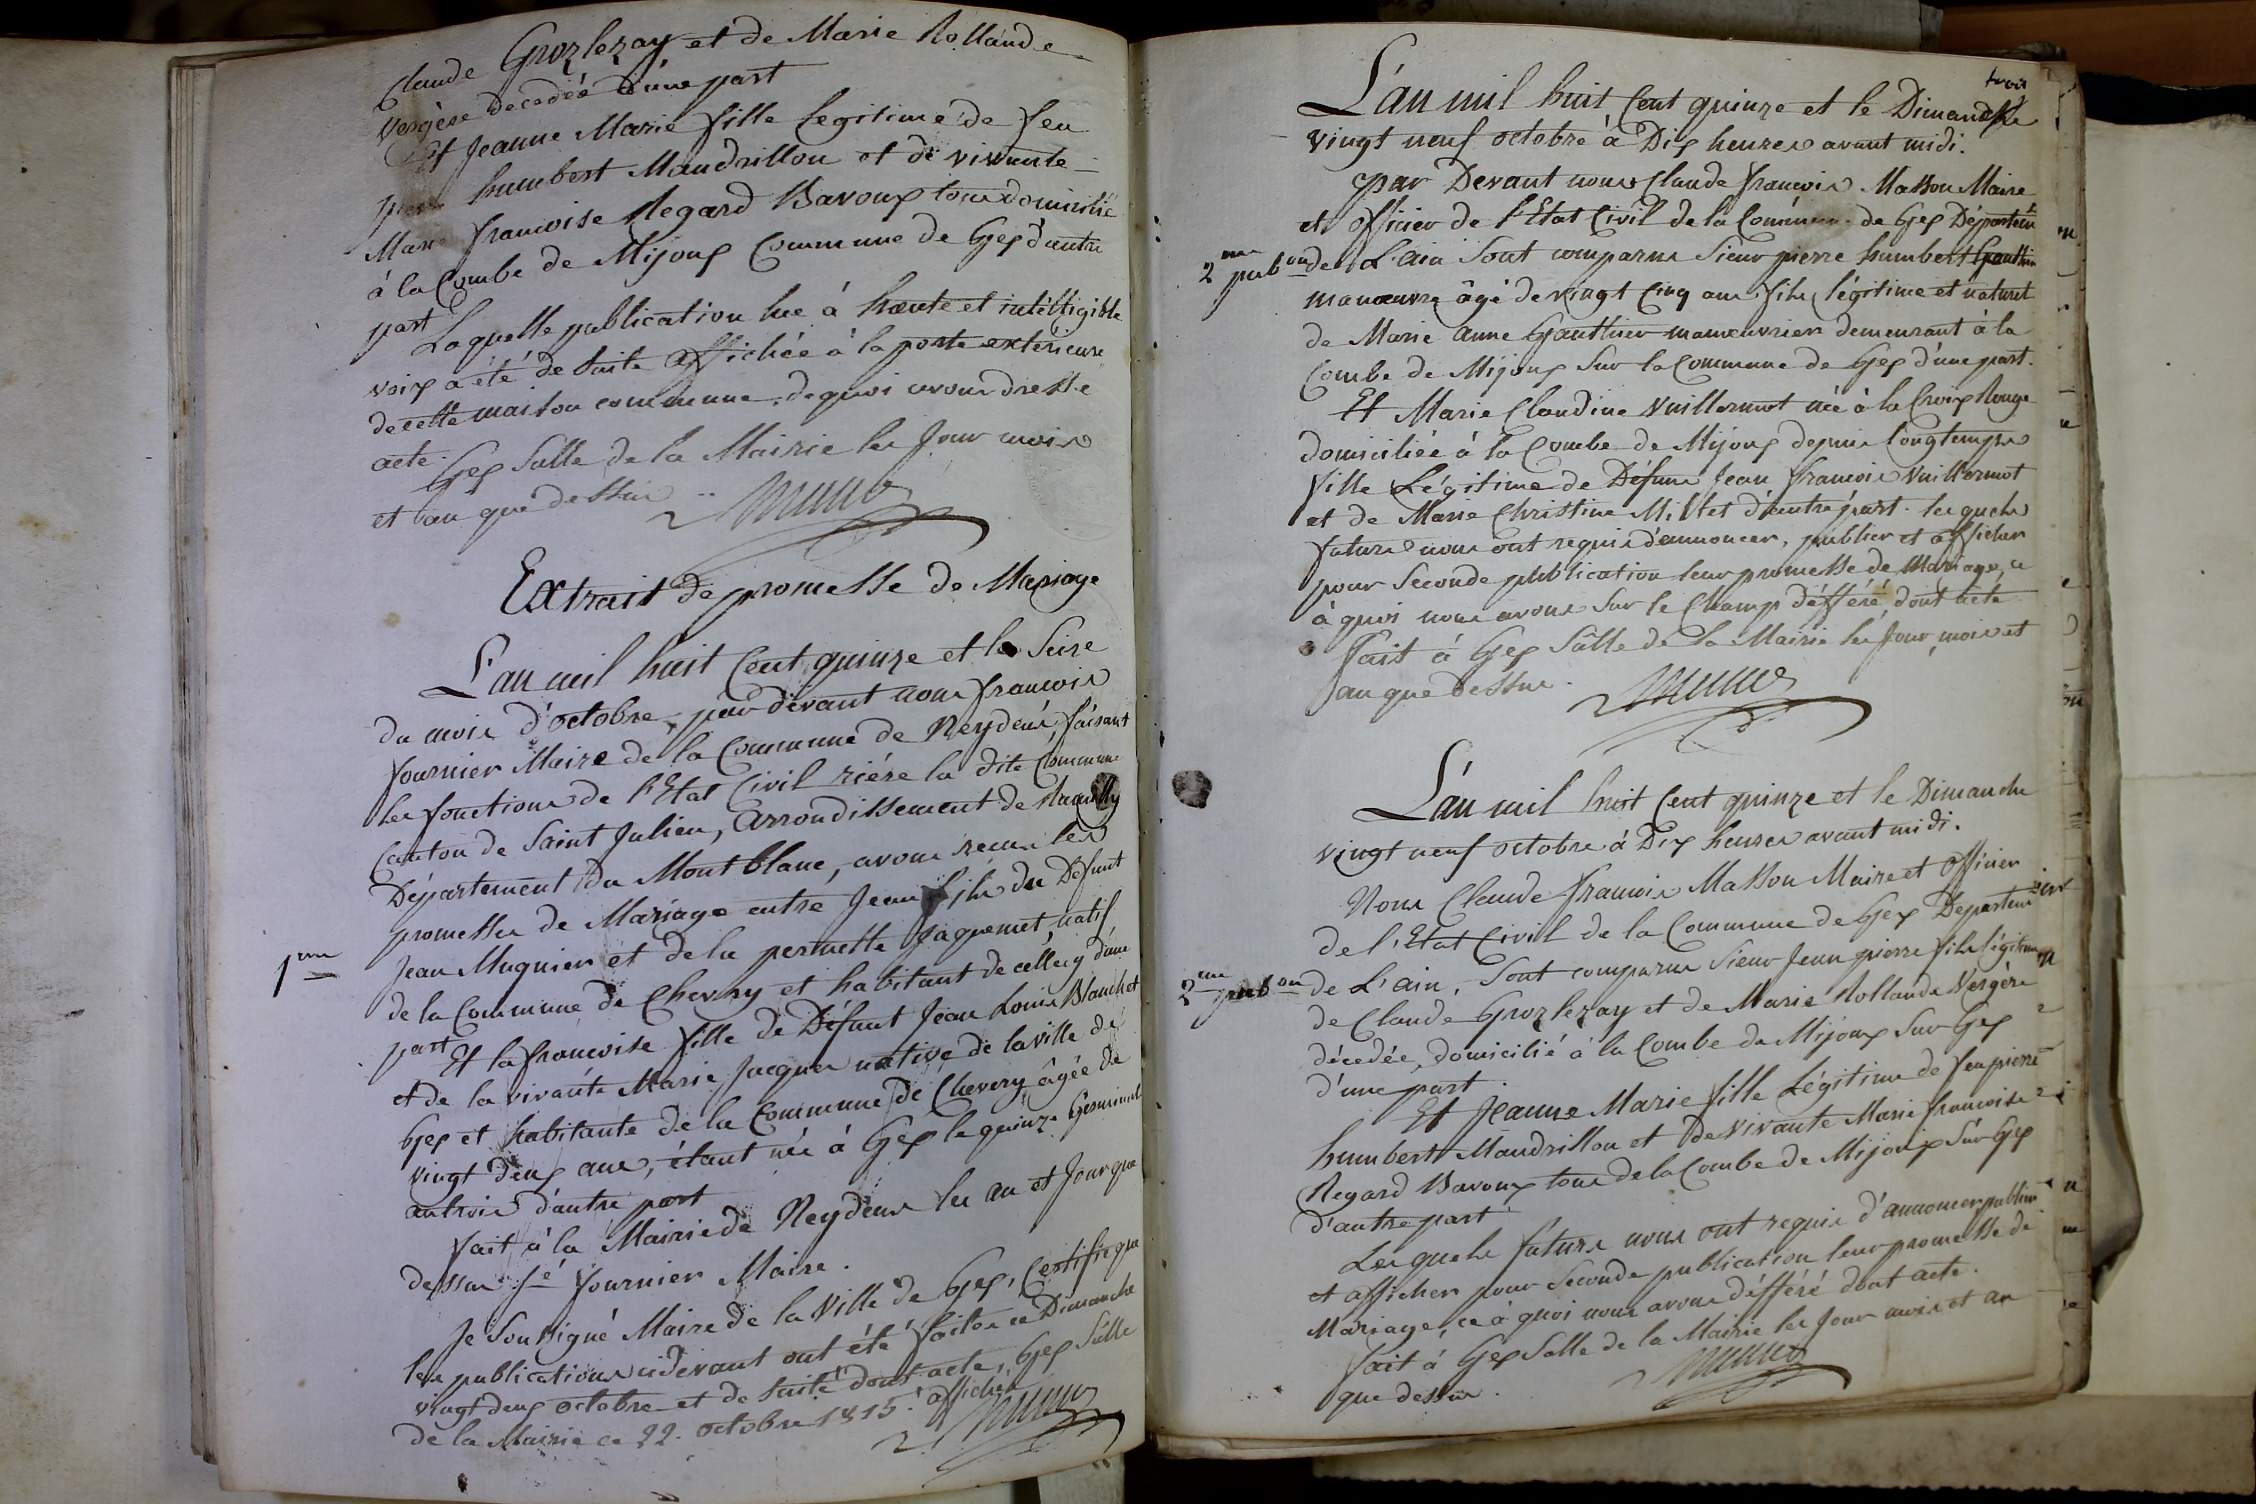 Claude Grozlezay et de Marie Rollande
Vergère decedée d'une part
Et Jeanne Marie fille legitime de feu
humbert Mandrillon et de vivante
Marie françoise Regard Bavoux tous domicilié
à la Combe de Mijoux Commune de Gex d'autre
part
Laquelle publication lue à haute et intélligible
voix a été de suite affichée à la porte exterieure
de cette maison commune, de quoi avons dressé
acte.
Gex Salle de la Mairie les Jour mois
et an que dessus
Extrait de promesse de Mariage
L'an mil huit Cent quinze et le Seize
du mois d'octobre, par dévant nous françois
fournier Maire de la Commune de Neydens, faisant
les fonctions de l'Etat Civil rière la dite Commune
Canton de Saint Julien, Arrondissement de Rumilly
Département du Mont blanc, avons recu les
promesses de Mariage entre Jean fils du Défunt
Jean Mugnier et de la pernette Jaquemet, natif
1ere
de la Commune de Chevry et habitant de célley d'une
part
Et la francoise fille de Défunt Jean Louis Blanchet
et de la vivante Marie Jacques native de la ville de
Gex et habitante de la Commune de Chevery âgée de
vingt deux ans, étant née à Gex le quinze Germinal
an trois d'autre part
fait à la Mairie de Neydens les an et Jour que
dessus sé fournier Maire.
Je Soussigné Maire de la Ville de Gex, Certifie que
les publications cidevant ont été faites ce Dimanche
vingt deux octobre et de suite affichés dont acte, Gex Salle
de la Mairie ce 22. octobre 1815.
trois
L'an mil huit Cent quinze et le Dimanche
vingt neuf octobre à Dix heures avant midi.
par Devant nous Claude françois Masson Maire
et officier de l'Etat Civil de la Commune de Gex Départem
2me pubon
de L'ain Sont comparus Sieur pierre humbert Gauthier
manœuvre âgé de vingt Cinq ans fils légitime et naturel
de Marie Anne Gauthier manœuvrier demeurant à la
Combe de Mijoux Sur la Commune de Gex d'une part.
Et Marie Claudine Vuillermot née à la Croix Rouge
domiciliée à la Combe de Mijoux depuis longtemps
fille Légitime de Défunt Jean françois Vuillermot
et de Marie Christine Millet d'autre part. les quels
futurs nous ont requis d'annoncer, publier et afficher
pour Seconde publication leur promesse de Mariage, ce
à quoi nous avons Sur le Champ défféré, dont acte
fait à Gex Sâlle de la Mairie les Jour, mois et
an que dessus.
L'an mil huit Cent quinze et le Dimanche
vingt neuf octobre à Dix heures avant midi.
Nous Claude francois Masson Maire et officier
de l'Etat Civil de la Commune de Gex Departem
2me pubon
de L'ain, Sont comparus Sieur Jean pierre fils légitime
de Claude Grozlezay et de Marie Rollande Vergère
décedée, domicilié à la Combe de Mijoux Sur Gex
d'une part.
Et Jeanne Marie fille Légitime de feu pierre
humbert Mandrillon et de vivante Marie francoise
Regard Bavoux tous de la Combe de Mijoux Sur Gex
d'autre part
Les quels futurs nous ont requis d'annoncer publier
et afficher pour Seconde publication leur promesse de
Mariage, ce à quoi nous avons défféré dont acte.
fait à Gex Salle de la Mairie les Jour mois et an
que dessus.